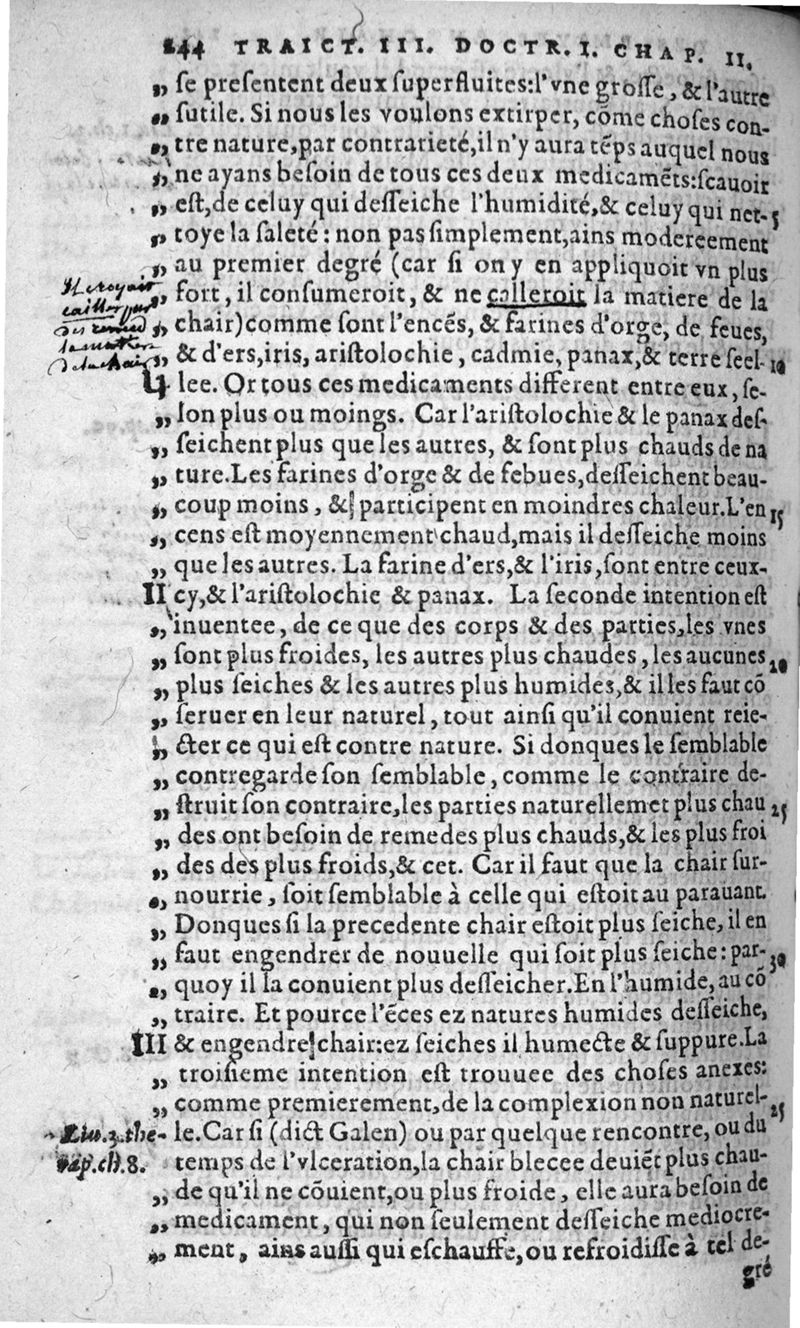 244 TRAICT. III. DOCTR. I. CHAP. II.
„ ſe preſentent deux ſuperfluites:l'vne groſſe, & l'autre
„ ſutile. Si nous les voulons extirper, cõme choſes con-
„ tre nature,par contrarieté,il n'y aura tẽps auquel nous
„ ne ayans beſoin de tous ces deux medicamẽts:ſcauoir
„ eſt,de celuy qui deſſeiche l'humidité,& celuy qui net- 5
„ toye la ſaleté: non pas ſimplement,ains modereement
„ au premier degré (car ſi on y en appliquoit vn plus
„ fort, il conſumeroit, & ne calleroit la matiere de la
„ chair)comme ſont l'encẽs, & farines d'orge, de feues,
„ & d'ers,iris, ariſtolochie, cadmie, panax,& terre ſeel- 10
lee. Or tous ces medicaments different entre eux, ſe-
„ lon plus ou moings. Car l'ariſtolochie & le panax deſ-
„ ſeichent plus que les autres, & ſont plus chauds de na
„ ture.Les farines d'orge & de febues,deſſeichent beau-
„ coup moins, & participent en moindres chaleur.L'en 15
„ cens eſt moyennement chaud,mais il deſſeiche moins
„ que les autres. La farine d'ers,& l'iris,ſont entre ceux-
II cy,& l'ariſtolochie & panax. La ſeconde intention eſt
„ inuentee, de ce que des corps & des parties,les vnes
„ ſont plus froides, les autres plus chaudes, les aucunes 20
„ plus ſeiches & les autres plus humides,& il les faut cõ
„ ſeruer en leur naturel, tout ainſi qu'il conuient reie-
„ cter ce qui eſt contre nature. Si donques le ſemblable
„ contregarde ſon ſemblable, comme le contraire de-
„ ſtruit ſon contraire,les parties naturellemẽt plus chau 25
„ des ont beſoin de remedes plus chauds,& les plus froi
„ des des plus froids,& cet. Car il faut que la chair ſur-
„ nourrie, ſoit ſemblable à celle qui eſtoit au parauant.
„ Donques ſi la precedente chair eſtoit plus ſeiche, il en
„ faut engendrer de nouuelle qui ſoit plus ſeiche: par- 30
„ quoy il la conuient plus deſſeicher.En l'humide, au cõ
„ traire. Et pource l'ẽces ez natures humides deſſeiche,
III & engendre chair:ez ſeiches il humecte & ſuppure.La
„ troiſieme intention eſt trouuee des choſes anexes:
„ comme premierement,de la complexion non naturel- 35
Liu.3.the- le.Car ſi (dict Galen) ou par quelque rencontre, ou du
rap.ch.8. temps de l'vlceration,la chair blecee deuiẽt plus chau-
„ de qu'il ne cõuient,ou plus froide, elle aura beſoin de
„ medicament, qui non ſeulement deſſeiche mediocre-
„ ment, ains auſſi qui eſchauffe,ou refroidiſſe à tel de-
gré